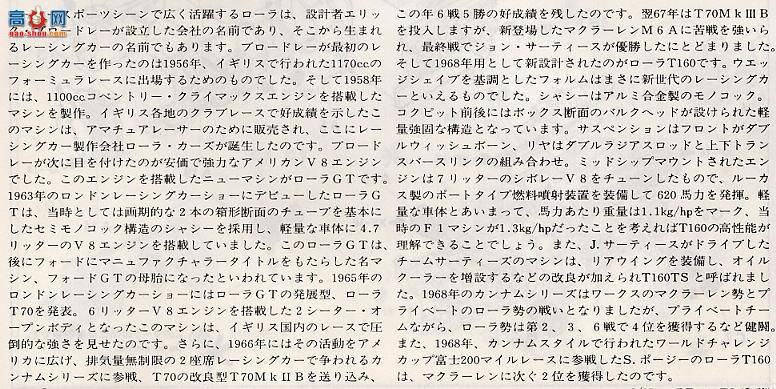 高高网
gao-shou.com
ポーツシーンで広く活躍するローラは、設計者エリッ
ドレーが設立した会社の名前であり、そこから生まれ
るレーシングカーの名前でもあります。ブロードレーが最初のレ
ーシングカーを作ったのは1956年、イギリスで行われた1170ccの
フォーミュラレースに出場するためのものでした。そして1958年
には、1100ccコベントリー・クライマックスエンジンを搭載した
マシンを製作。イギリス各地のクラブレースで好成績を示したこ
のマシンは、アマチュアレーサーのために販売され、ここにレー
シングカー製作会社ローラ・カーズが誕生したのです。ブロード
レーが次に目を付けたのが安価で強力なアメリカンV8エンジン
でした。このエンジンを搭載したニューマシンがローラGTです。
1963年のロンドンレーシングカーショーにデビューしたローラG
Tは、当時としては画期的な2本の箱形断面のチューブを基本に
したセミモノコック構造のシャシーを採用し、軽量な車体に4.7
リッターのV8エンジンを搭載していました。このローラGTは、
後にフォードにマニュファクチャラータイトルをもたらした名マ
シン、フォードGTの母胎になったといわれています。1965年の
ロンドンレーシングカーショーにはローラGTの発展型、ローラ
T70を発表。6リッターV8エンジンを搭載した2シーター・オ
ープンボディとなったこのマシンは、イギリス国内のレースで圧
倒的な強さを見せたのです。さらに、1966年にはその活動をアメ
リカに広げ、排気量無制限の2座席レーシングカーで争われるカ
ンナムシリーズに参戦、T70の改良型T70MkⅡBを送り込み、
この年6戦5勝の好成績を残したのです。翌67年はT70MkⅢB
を投入しますが、新登場したマクラーレンM6Aに苦戦を強いら
れ、最終戦でジョン・サーティースが優勝したにとどまりました。
そして1968年用として新設計されたのがローラT160です。ウエッ
ジシェイプを基調としたフォルムはまさに新世代のレーシングカ
ーといえるものでした。シャシーはアルミ合金製のモノコック。
コクピット前後にはボックス断面のバルクヘッドが設けられた軽
量強固な構造となっています。サスペンションはフロントがダブ
ルウィッシュボーン、リヤはダブルラジアスロッドと上下トラン
スバースリンクの組み合わせ。ミッドシップマウントされたエン
ジンは7リッターのシボレーV8をチューンしたもので、ルーカ
ス製のポートタイプ燃料噴射装置を装備して620馬力を発揮。軽
量な車体とあいまって、馬力あたり重量は1.1kg/hpをマーク、当
時のF1マシンが1.3kg/hpだったことを考えればT160の高性能が
理解できることでしょう。また、J.サーティースがドライブした
チームサーティースのマシンは、リアウイングを装備し、オイル
クーラーを増設するなどの改良が加えられT160TSと呼ばれまし
た。1968年のカンナムシリーズはワークスのマクラーレン勢とプラ
イベートのローラ勢の戦いとなりましたが、プライベートチー
ムながら、ローラ勢は第2、3、6戦で4位を獲得するなど健闘。
また、1968年、カンナムスタイルで行われたワールドチャレンジ
カップ富士200マイルレースに参戦したS.ポージーのローラT160
は、マクラーレンに次ぐ2位を獲得したのです。